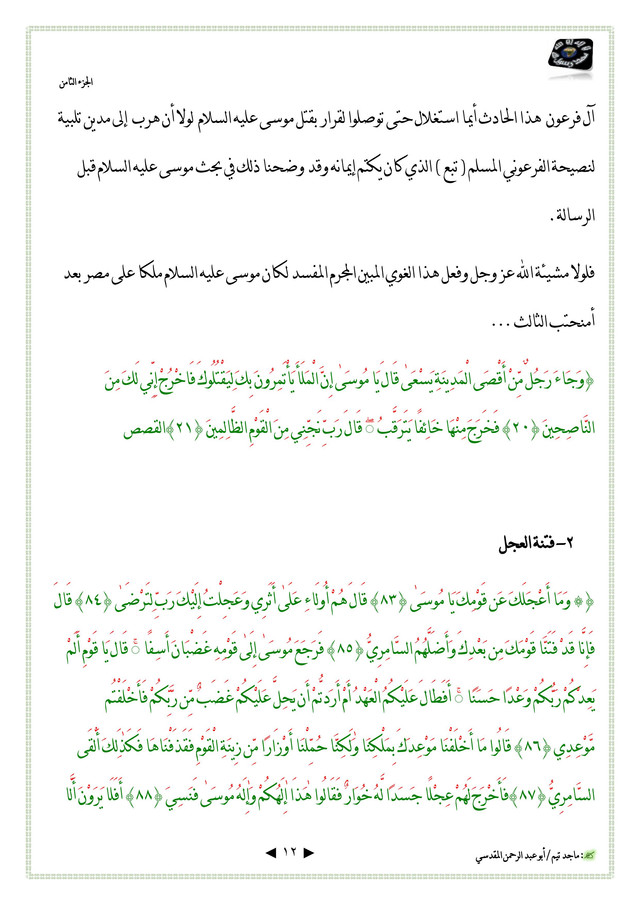 الجزء الثامن
آل فرعون هذا الحادث أيما استغلال حتى توصلوا لقرار بقتل موسى عليه السلام لولا أن هرب إلى مدين تلبية
لنصيحة الفرعوني المسلم ( تبع ) الذي كان يكتم إيمانه وقد وضحنا ذلك في بحث موسى عليه السلام قبل
الرسالة .
فلولا مشيئة الله عز وجل وفعل هذا الغوي المبين المجرم المفسد لكان موسى عليه السلام ملكا على مصر بعد
أمنحتب الثالث ...
﴿وَجَاءَ رَجُلٌ مِّنْ أَقْصَى الْمَدِينَةِ يَسْعَىٰ قَالَ يَا مُوسَىٰ إِنَّ الْمَلَأَ يَأْتَمِرُونَ بِكَ لِيَقْتُلُوكَ فَاخْرُجْ إِنِّي لَكَ مِنَ
النَّاصِحِينَ ﴿٢٠﴾ فَخَرَجَ مِنْهَا خَائِفًا يَتَرَقَّبُ ۖ قَالَ رَبِّ نَجِّنِي مِنَ الْقَوْمِ الظَّالِمِينَ ﴿٢١﴾القصص
٢- فتنة العجل
﴿ ۞ وَمَا أَعْجَلَكَ عَن قَوْمِكَ يَا مُوسَىٰ ﴿٨٣﴾ قَالَ هُمْ أُولَاءِ عَلَىٰ أَثَرِي وَعَجِلْتُ إِلَيْكَ رَبِّ لِتَرْضَىٰ ﴿٨٤﴾ قَالَ
فَإِنَّا قَدْ فَتَنَّا قَوْمَكَ مِن بَعْدِكَ وَأَضَلَّهُمُ السَّامِرِيُّ ﴿٨٥﴾ فَرَجَعَ مُوسَىٰ إِلَىٰ قَوْمِهِ غَضْبَانَ أَسِفًا ۚ قَالَ يَا قَوْمِ أَلَمْ
يَعِدْكُمْ رَبُّكُمْ وَعْدًا حَسَنًا ۚ أَفَطَالَ عَلَيْكُمُ الْعَهْدُ أَمْ أَرَدتُّمْ أَن يَحِلَّ عَلَيْكُمْ غَضَبٌ مِّن رَّبِّكُمْ فَأَخْلَفْتُم
مَّوْعِدِي ﴿٨٦﴾ قَالُوا مَا أَخْلَفْنَا مَوْعِدَكَ بِمَلْكِنَا وَلَٰكِنَّا حُمِّلْنَا أَوْزَارًا مِّن زِينَةِ الْقَوْمِ فَقَذَفْنَاهَا فَكَذَٰلِكَ أَلْقَى
السَّامِرِيُّ ﴿٨٧﴾ فَأَخْرَجَ لَهُمْ عِجْلًا جَسَدًا لَّهُ خُوَارٌ فَقَالُوا هَٰذَا إِلَٰهُكُمْ وَإِلَٰهُ مُوسَىٰ فَنَسِيَ ﴿٨٨﴾ أَفَلَا يَرَوْنَ أَلَّا
◄ ١٢ ►
: ماجد تيم / أبو عبد الرحمن المقدسي